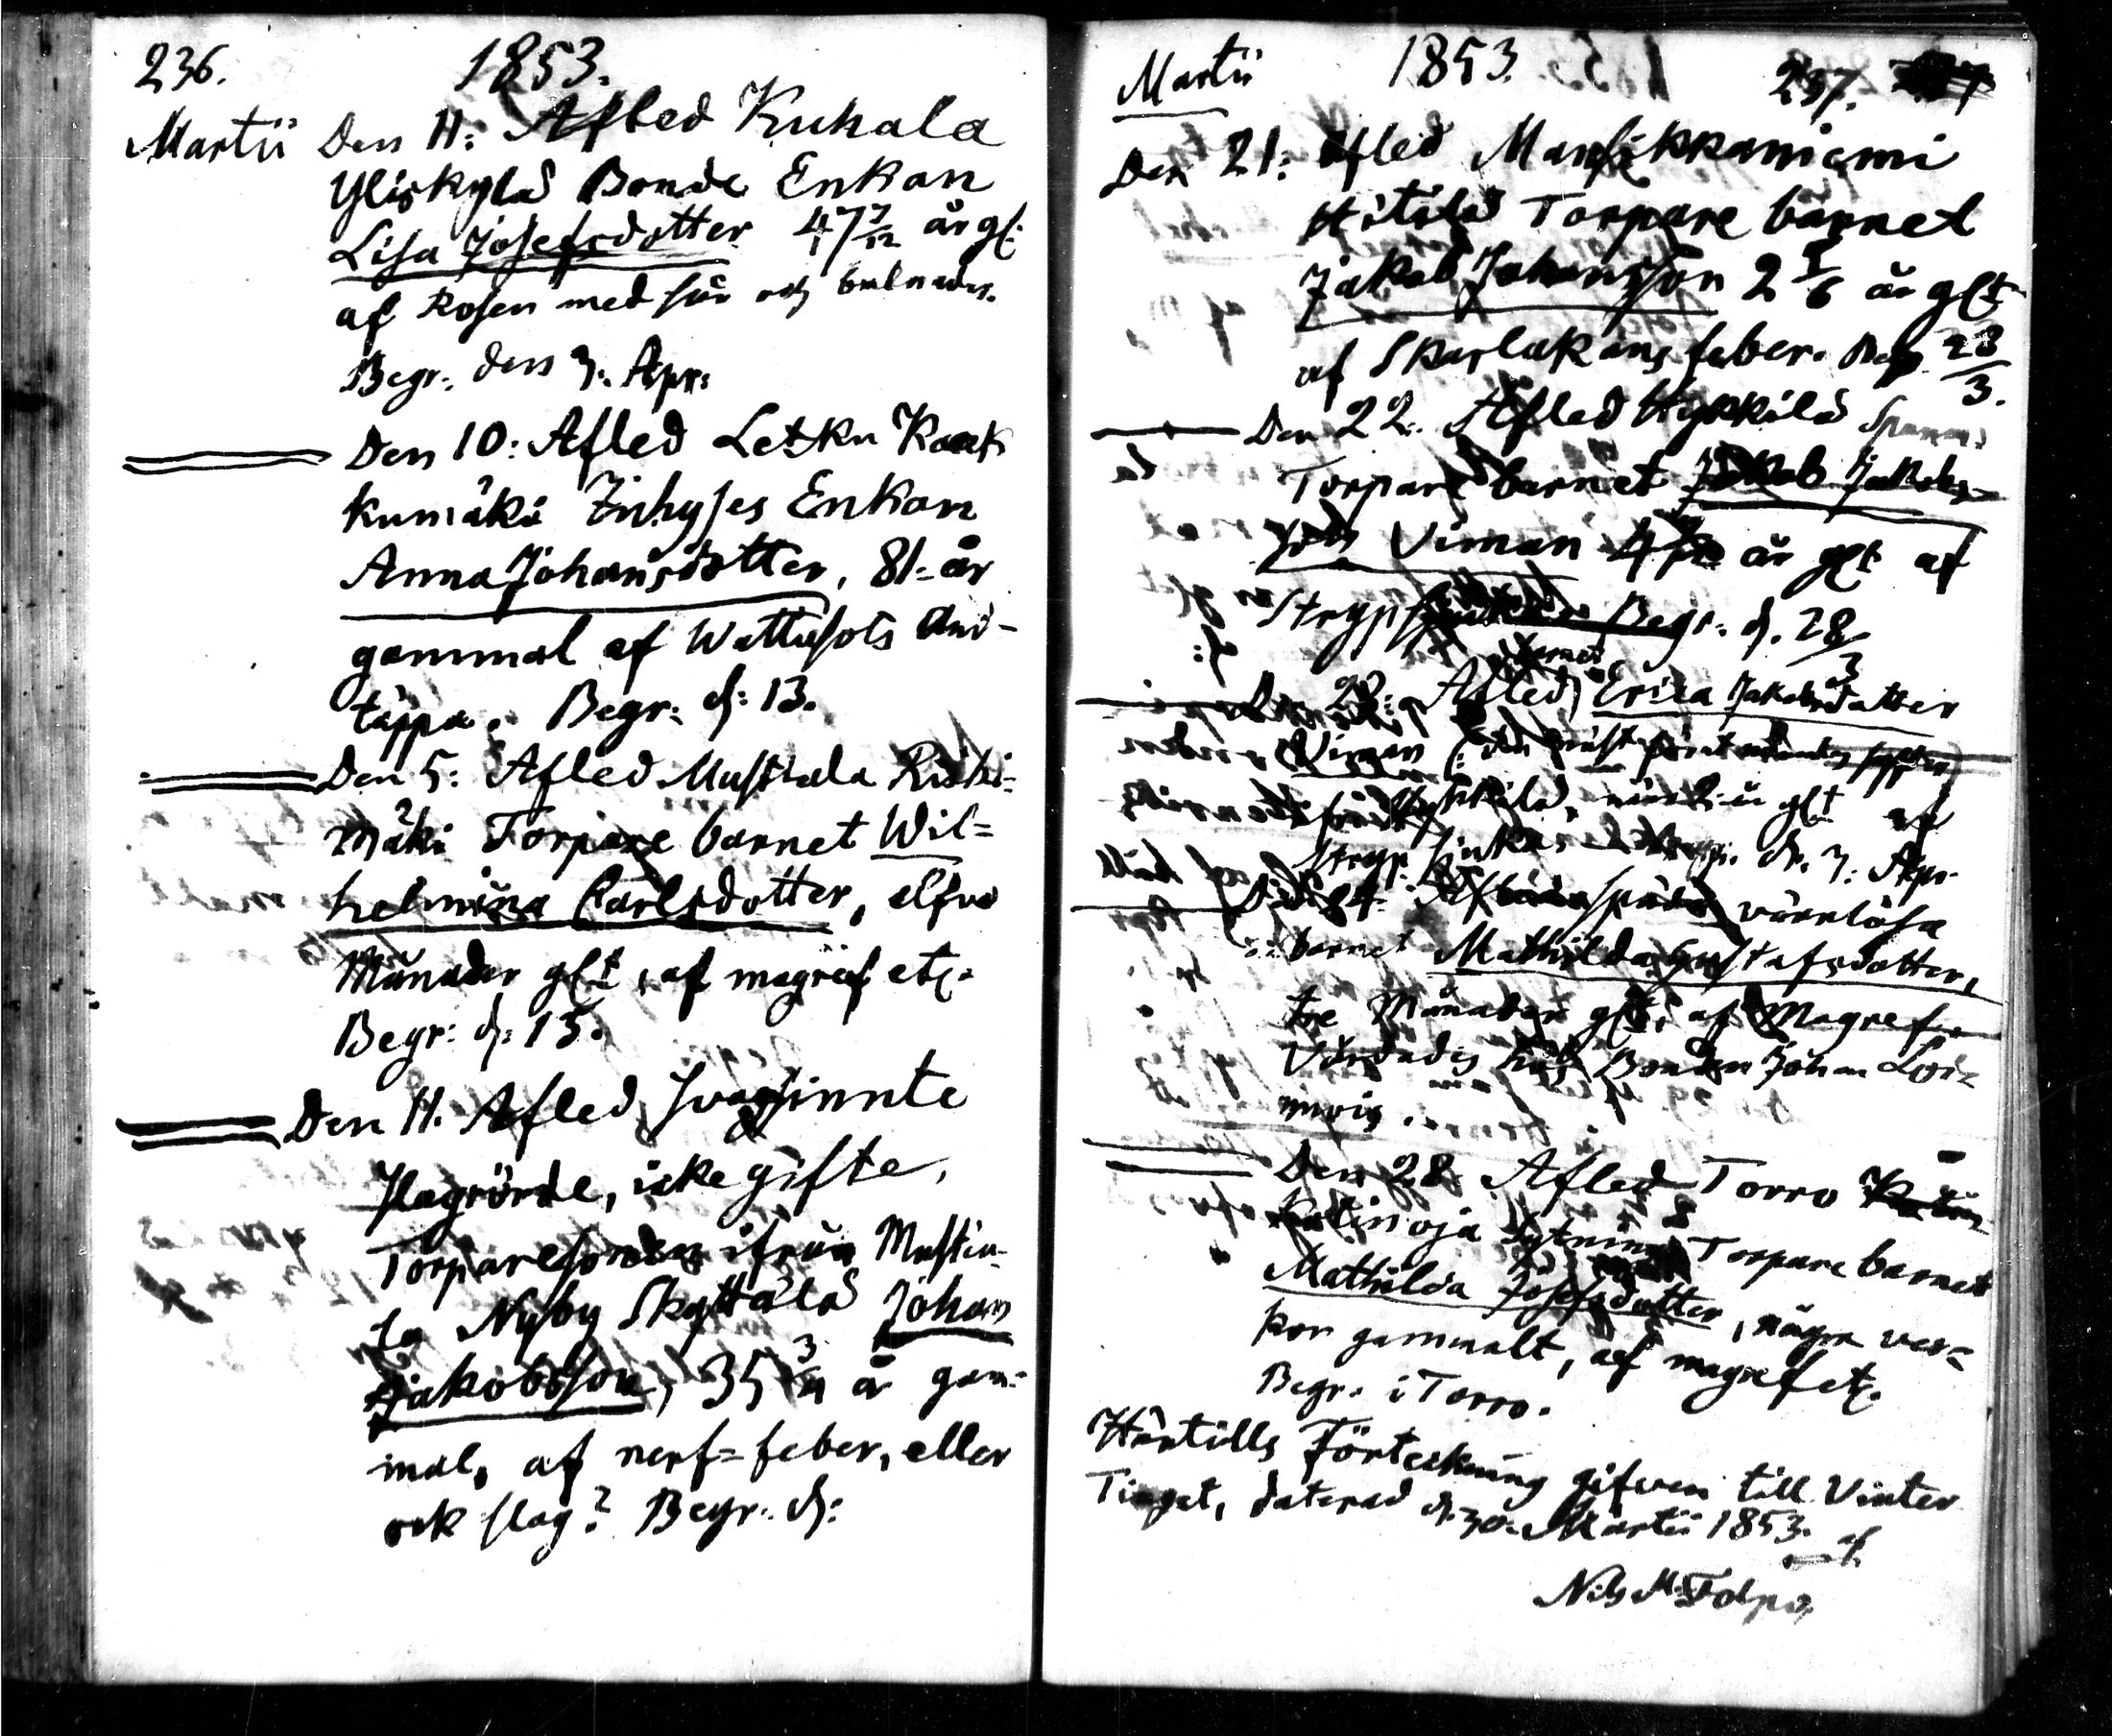 236. 1853.
Martii Den 11: Afled Kuhala
Yliskylä Bonde Enkan
Lisa Josefsdotter 47 7/12 år gl:
af Rosen med sår och bulnader.
Begr: den 3: Apr:
Den 10: Afled Letku
kumäki Inhyses Enkan
Anna Johansdotter, 81 - år
gammal af Wattusots And-
täppa. Begr: d: 13.
Den 5: Afled Mustiala Riihi-
mäki Torpare barnet Wil=
helmina Carlsdotter, elfva
Månader glt, af magref etc.
Begr: d: 13.
Den 11. Afled svagsinnte
slagrörde, icke gifte,
Torparesonen ifrån Mustia-
la Nyby Skyttälä Johan
Jakobsson, 35 3/4 år gam-
mal, af nerf=feber, eller
ock slag? Begr. d:
Martii 1853. 237.
Den 21: Afled Mansikkaniemi
Hitilä Torpare barnet
Jakob Johansson 2 5/6 år glt
af Skarlakans feber. Begr. 28/3.
Den 22. Afled Hykkilä
Torpare barnet Jakob Jakobs-
son Viman 4 år glt af
Strypsjukan Begr. d. 28/3
Den 28: Afled barnet Erica Jakobsdotter
Viman
Hykkilä, år glt af
Stryp sjukan Begr. d. 3: Apr.
Den 24. Afled späda värnlösa
barnet Mathilda Gustafsdotter,
tre Månader glt, af Magref.
Vårdades hos Bonden Johan
Den 28. Afled Torro
oja Torpare barnet
Mathilda Josefsdotter, några vec-
kor gammalt, af magref etc.
Begr. i Torro.
Härtills Förteckning gifven till Vinter
Tinget, daterad d. 30. Martii 1853. af
Nils M.